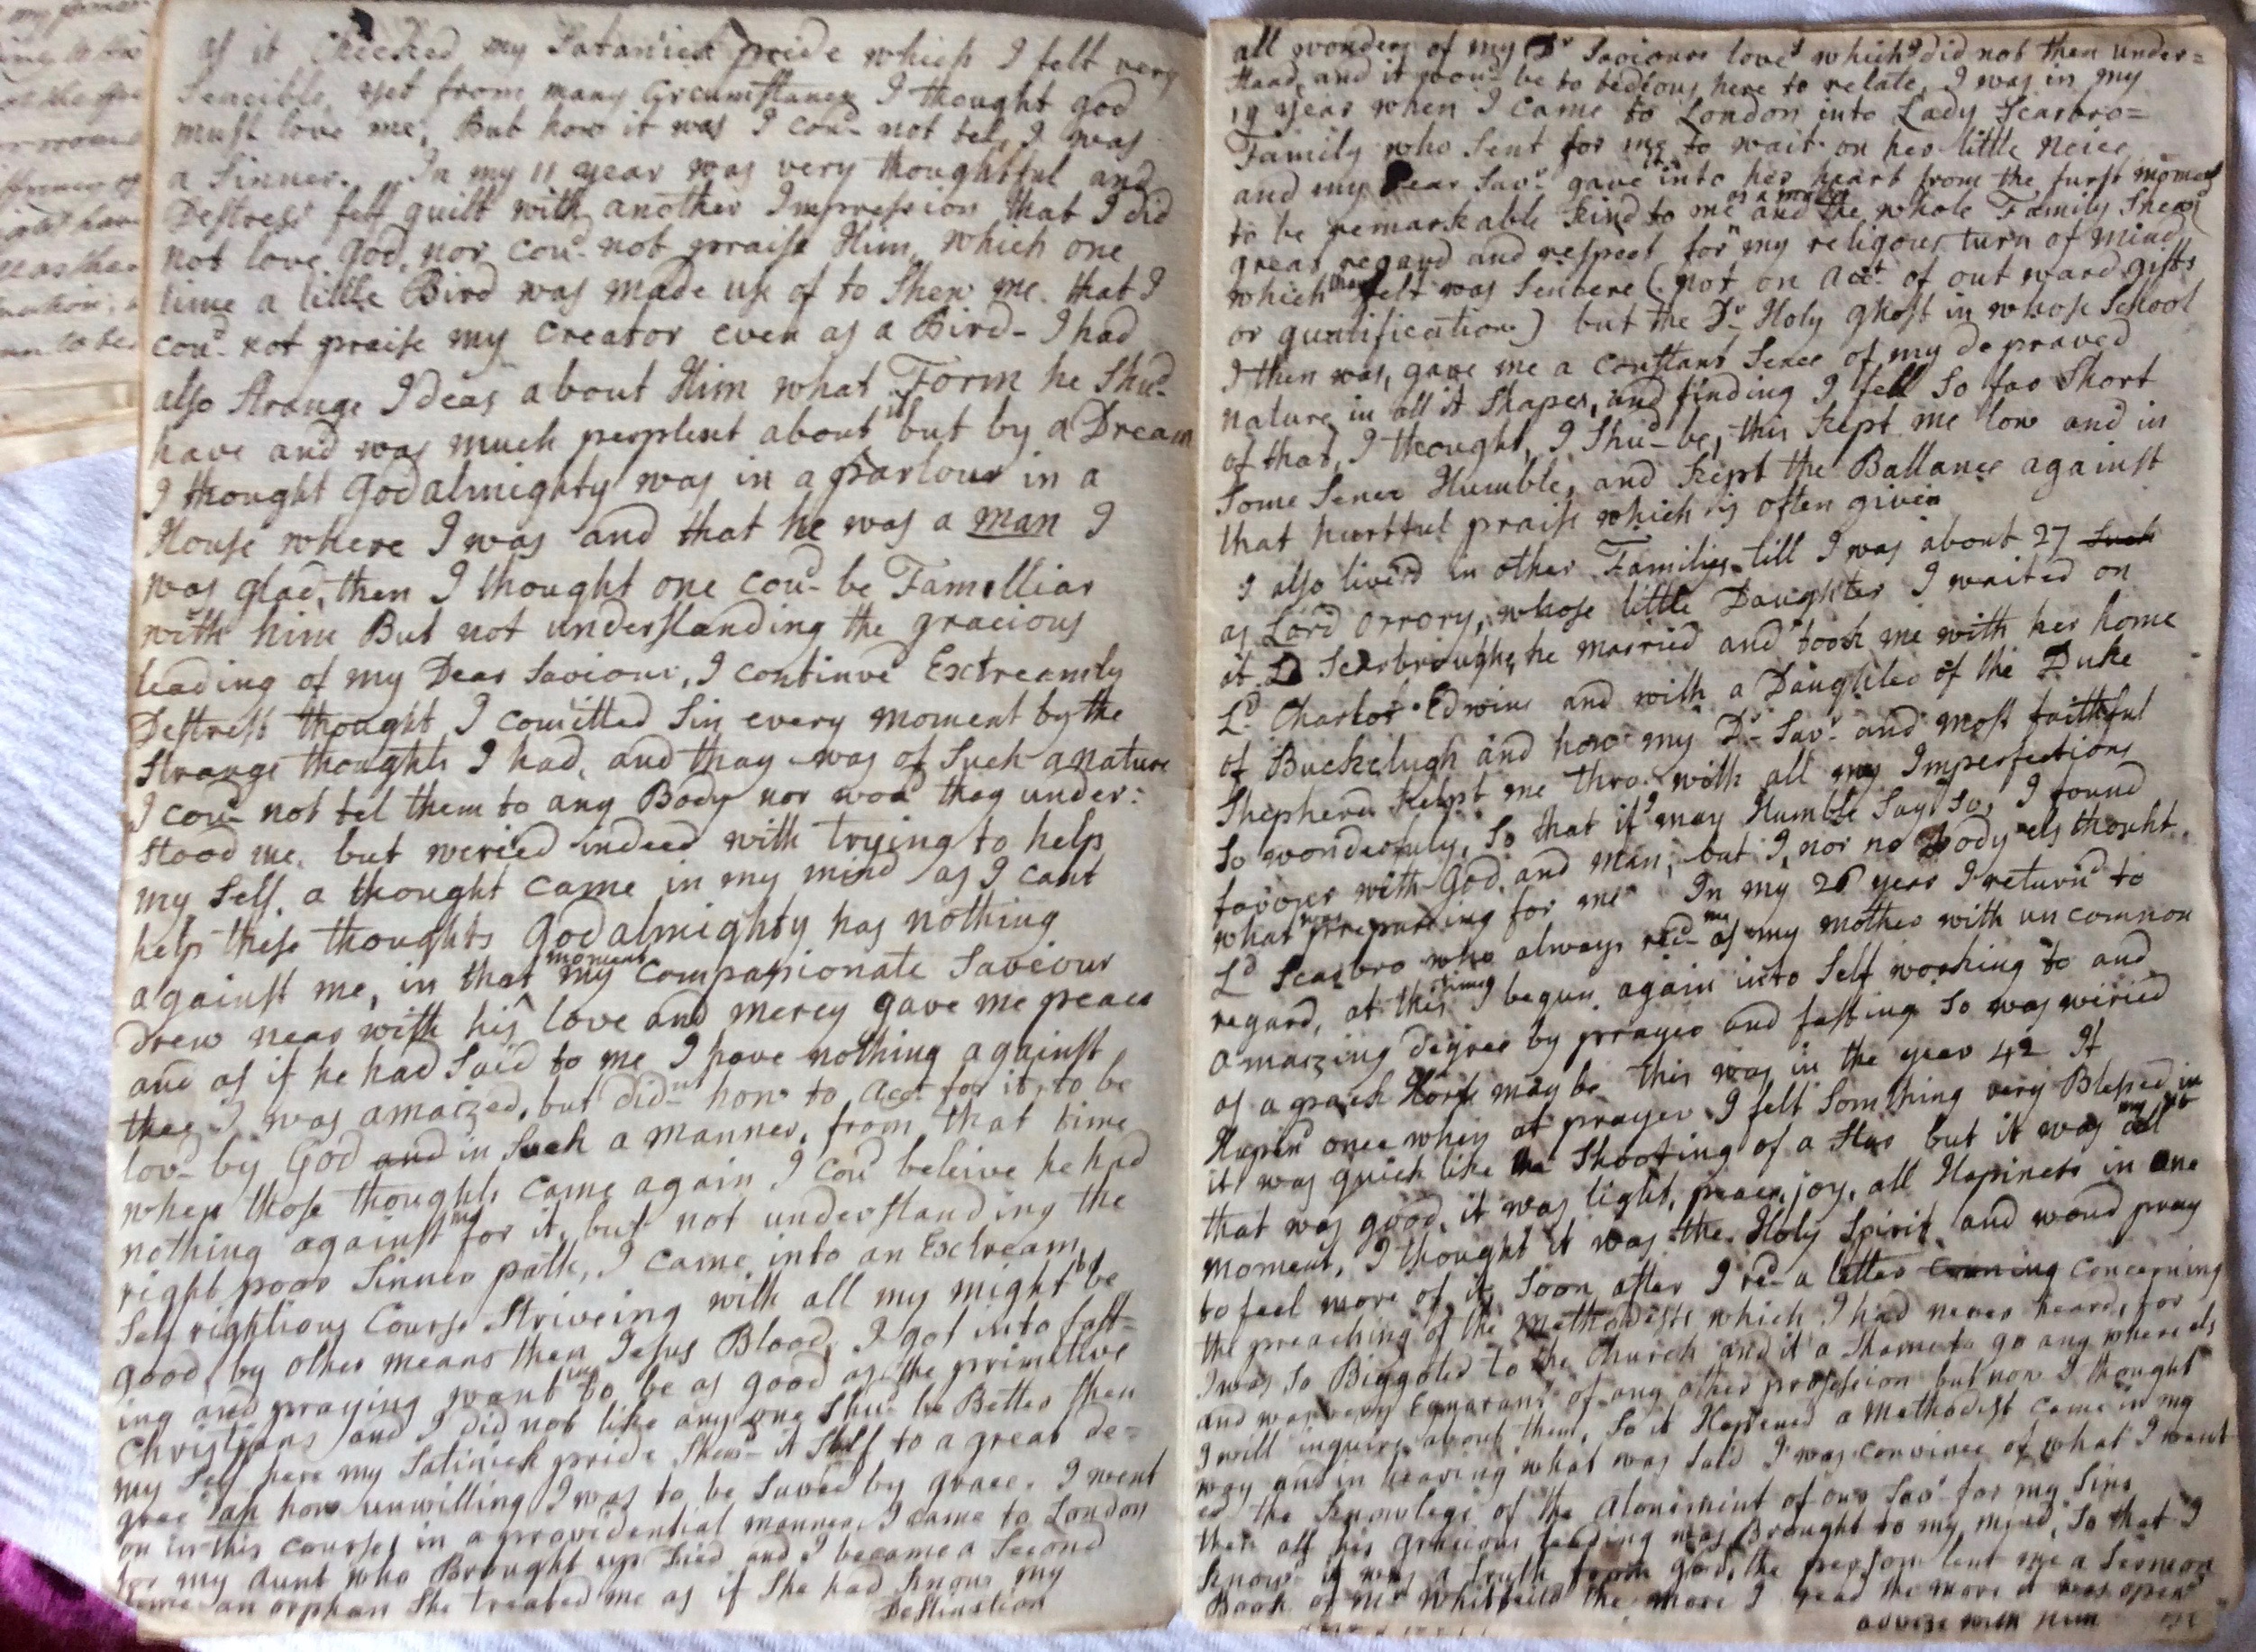 as it Checked my Satanick pride which I felt very
Sencible, yet from many Circumstances I thought god
must love me, But how it was I coud not tel, I was
a Sinner. In my 11 year was very thoughtful and
Destress felt guilt with another Impression that I did
not love god, nor coud not praise Him, which one
time a little Bird was made use of to Shew me that I
coud not praise my Creator even as a Bird - I had
also Strange Ideas about Him what Form he Shud
have and was much perplext about it but by a Dream
I thought God almighty was in a parlour in a
House where I was and that he was a man I
was glad, then I thought one coud be Famelliar
with him But not understanding the gracious
leading of my Dear Saviour, I continue Extreamly
Destress thought I comitted Sin every moment by the
Strange thoughts I had, and thay was of Such a nature
I coud not tel them to any Body nor woud they under:
stood me. but weried indeed with trying to help
my Self, a thought came in my mind as I cant
help these thoughts God almighty has nothing
against me, in that moment my Compassionate Saveour
Drew near with his love and mercy gave me peace
and as if he had Said to me I have nothing against
thee I was amaized, but didnt how to acct for it, to be
lovd by God and in Such a manner, from that time
when those thoughts came again I coud beleive he had
nothing against me for it, but not understanding the
right poor Sinner path, I came into an Extream
Self rightious Course Striveing with all my might to be
good by other means then Jesus Blood, I got into fast=
ing and praying wanting to be as good as the primitive
Christians and I did not like any one Shud be Better then
my Self here my Satinick pride Shewd it Self to a great de=
gree ah how unwilling I was to be Saved by grace. I went
on in this courses in a providential manner I came to London
for my Aunt who Brought up Died and I became a Second
time an orphan She treated me as if She had known my
Destination
all wonders of my Dr Saviours love which I did not then under=
stand, and it woud be to tedious here to relate, I was in my
19 year when I came to London into Lady Scarbro=
Family who Sent for me to wait on her little Neice
and my Dear Savr gave it into her heart from the furst moment
to be remarkable kind to me as a mother and the whole Family Shewd
great regard and respect for my religous turn of mind
which then felt was Sincere (not on acct of out ward gifts
or qualification) but the Dr Holy Ghost in whose School
I then was, gave me a constant Sence of my depraved
nature in all it Shapes, and finding I fell So far Short
of that, I thought, I Shud be, this kept me low and in
Some Sence Humble, and kept the Ballance against
that hurtful praise which is often given
I also lived in other Families till I was about 27 Such
as Lord Orrory, whose little Daughter I waited on
at Ld Scarbroughs, he married and took me with her home
Ld Charlot Edwins and with a Daughter of the Duke
of Buckclugh and how my Dr Savr and most faithful
Shepherd kelpt me thro with all my Imperfections
So wonderfuly, So that if I may Humble Say So, I found
favour with God and man, but I, nor no body els thought
what was preparing for me In my 26 year I returnd to
Ld Scarbro who always recd me as my mother with un common
regard, at this time I begun again into Self working to and
amaizing degree by prayer and fasting So was weried
as a pack Horse may be This was in the year 42 It
Hapind once when at prayer I felt Somthing very Blessed in my
it was quick like the Shooting of a Star but it was all
that was good, it was light, peace, joy, all Hapiness in one
moment, I thought it was the Holy Spirit and woud pray
to feel more of it, Soon after I recd a letter concerning
the preaching of the Methodists which I had never heard, for
I was So Biggoted to the Church and it a Shame to go any where els
and was very Egnarant of any other profession but now I thought
I will inquire about them, So it Happened a Methodist came in my
way and in hearing what was Said I was convince of what I want
ed the knowlege of the Atonement of our Savr for my Sins
then all his gracious leading was Brought to my mind, So that I
knowd it was a truth from god, the person lent me a Sermon
Book of Mr Whitfeild the more I read the more it was opend
advise with him